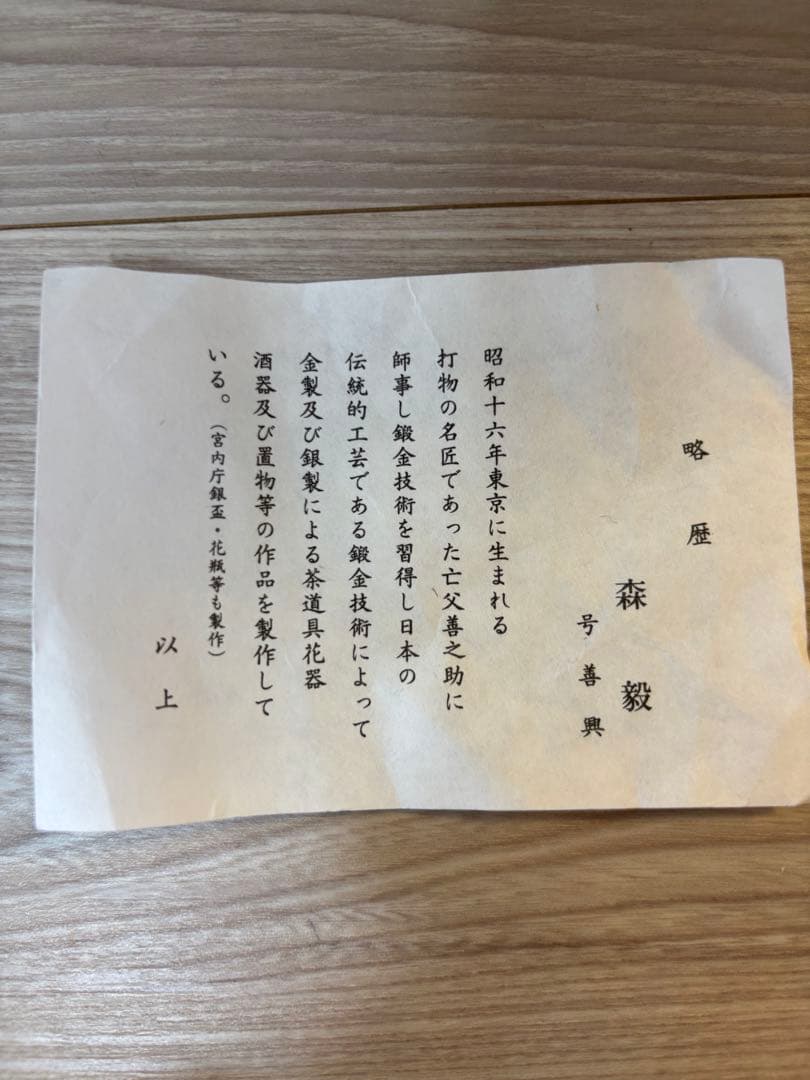 略歴
森毅
号善興
昭和十六年東京に生まれる
打物の名匠であった亡父善之助に
師事し鍛金技術を習得し日本の
伝統的工芸である鍛金技術によって
金製及び銀製による茶道具花器
酒器及び置物等の作品を製作して
いる。（宮内庁銀盃・花瓶等も製作）
以上